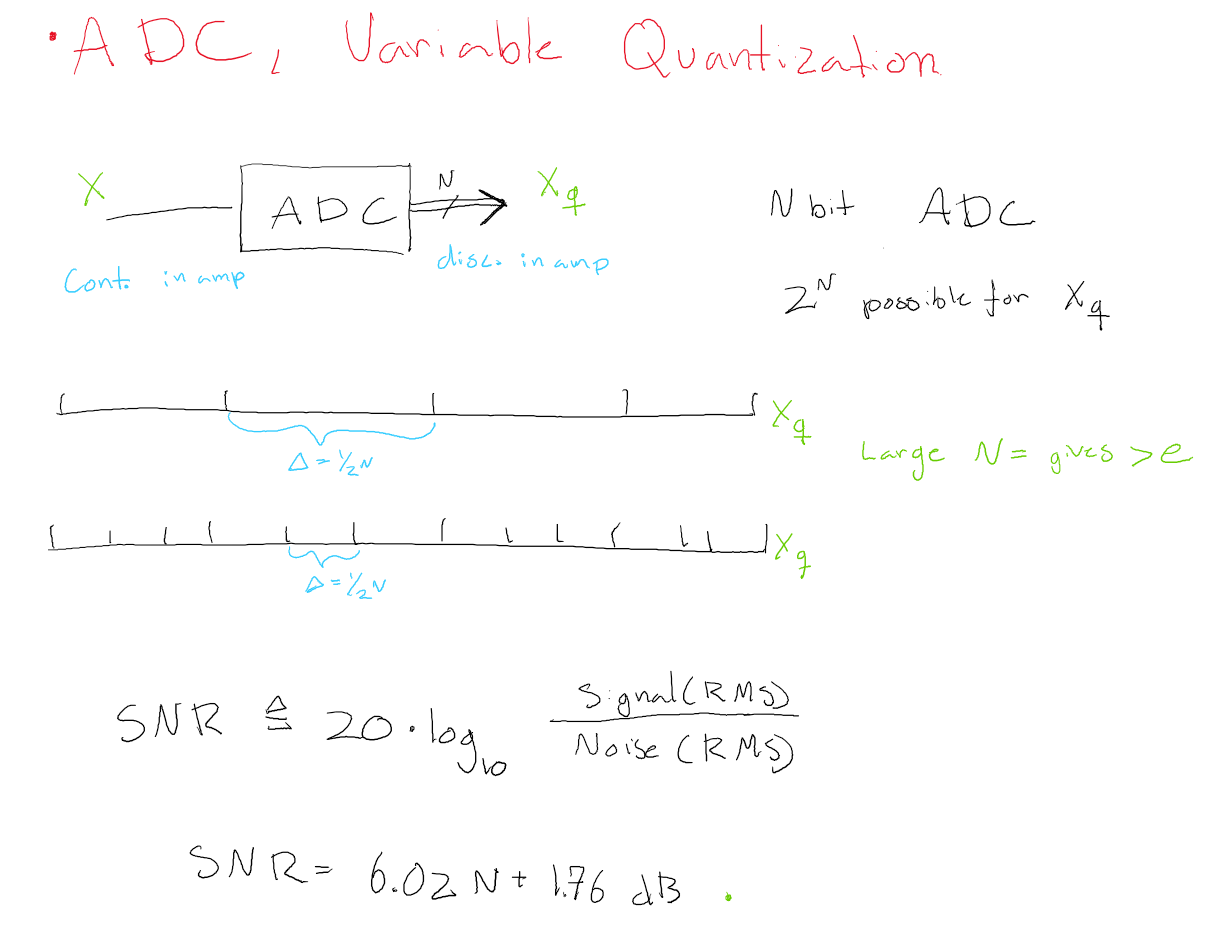 • ADC, Variable Quantization
X ADC N Xq
Cont. in amp disc. in amp
N bit ADC
2^N possible for Xq
Xq
Δ = 1/2N
Large N = gives > e
Xq
Δ = 1/2N
SNR ≜ 20 · log10 Signal(RMS) / Noise (RMS)
SNR = 6.02 N + 1.76 dB .